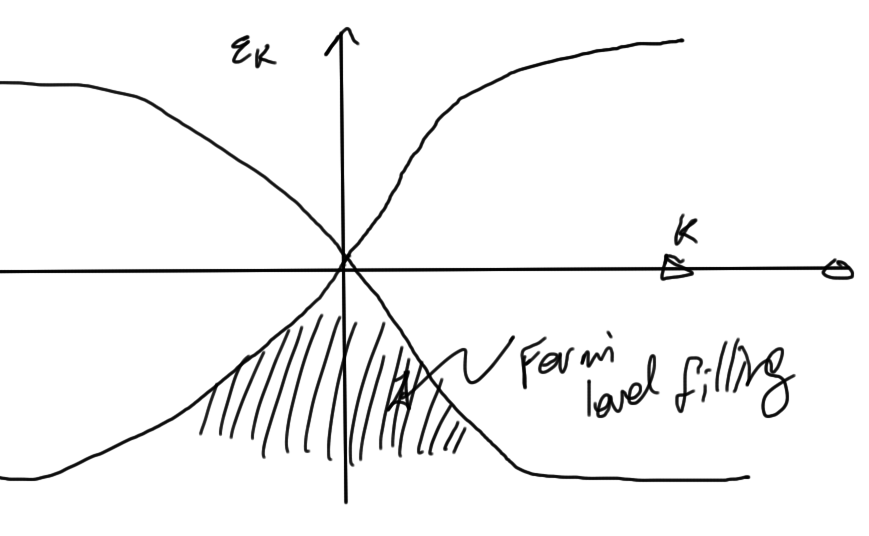 εK
K
Fermi
level filling